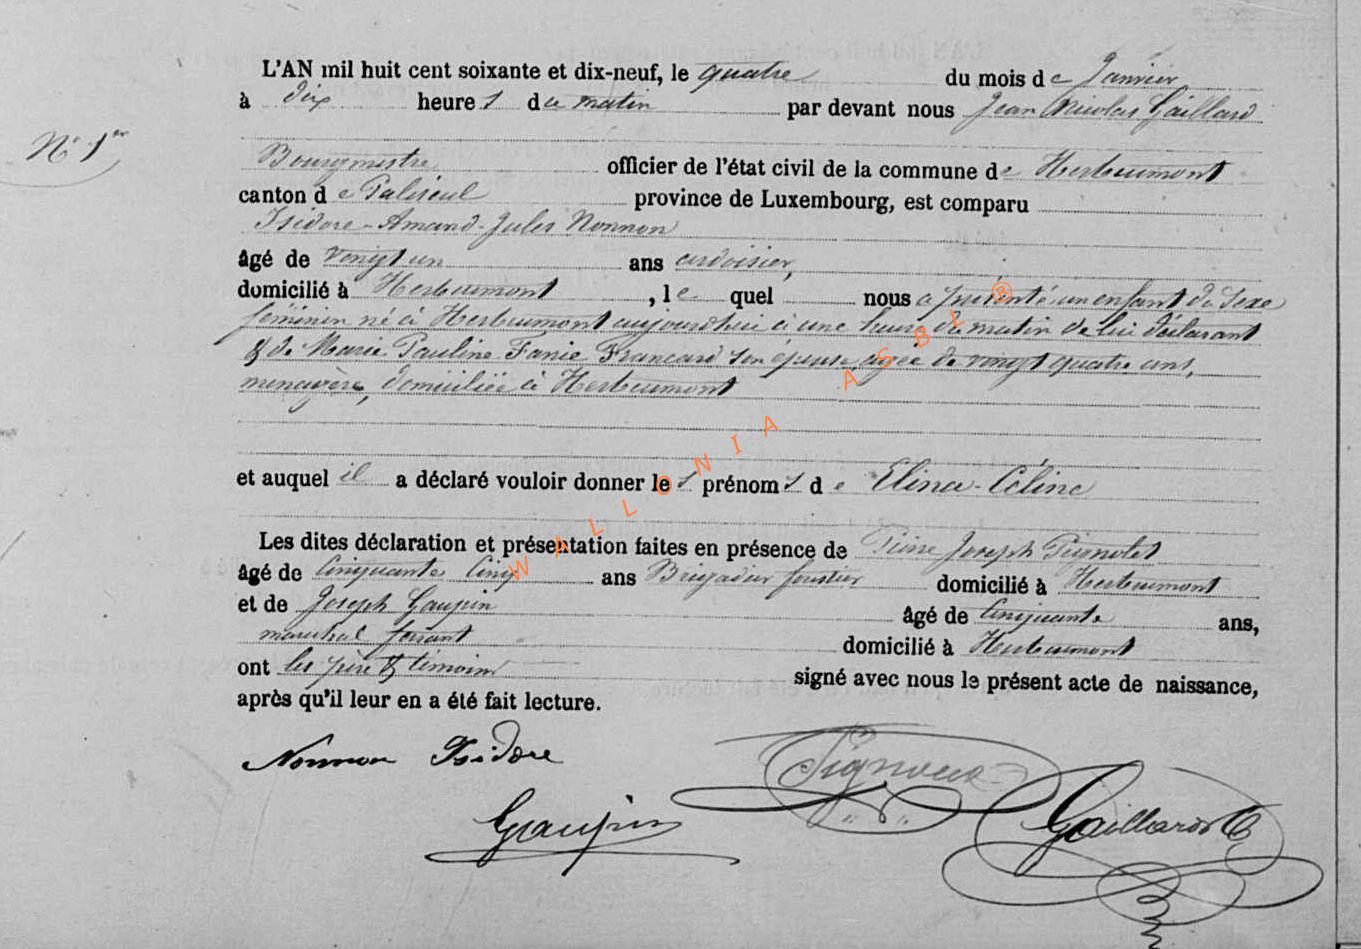 L'AN mil huit cent soixante et dix-neuf, le quatre du mois de Janvier
à dix heures du matin par devant nous Jean Nicolas Gaillard
N° 1er
Bourgmestre officier de l'état civil de la commune de Herbeumont
canton de Paliseul province de Luxembourg, est comparu
Isidore-Amand-Jules Nonnon
âgé de vingt un ans ardoisier,
domicilié à Herbeumont, le quel nous a présenté un enfant du sexe
féminin né à Herbeumont aujourdhui à une heure du matin de lui déclarant
& de Marie Pauline Fanie Francard son épouse, agée de vingt quatre ans,
menagère, domiciliée à Herbeumont
et auquel il a déclaré vouloir donner les prénoms de Elina-Céline
Les dites déclaration et présentation faites en présence de Pierre Joseph
âgé de Cinquante Cinq ans Brigadier forestier domicilié à Herbeumont
et de Joseph Gaupin âgé de Cinquante ans,
marechal ferrant domicilié à Herbeumont
ont les père & témoins signé avec nous le présent acte de naissance,
après qu'il leur en a été fait lecture.
Nonnon Isidore
Gaupin
Gaillard
WALLONIA ASBL ®